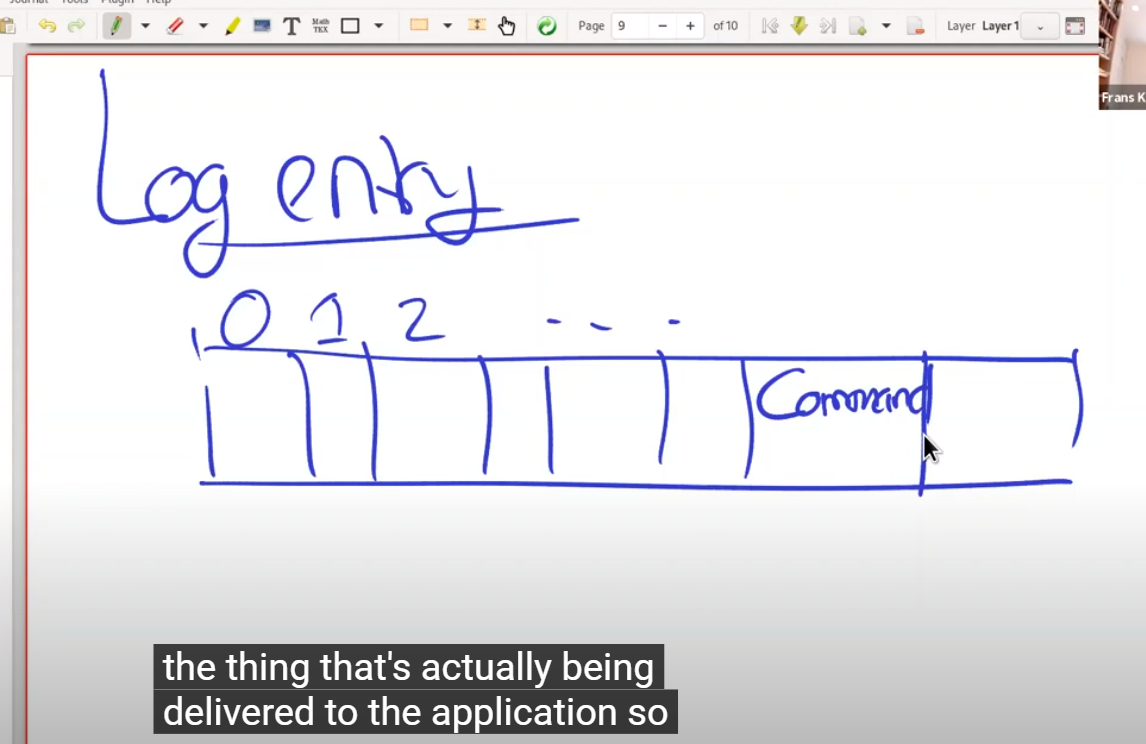 Journal Tools Plugin Help
T Math TEX Page 9 − + of 10 Layer Layer 1
Frans K
Log entry
0 1 2 - - -
Command
the thing that's actually being
delivered to the application so